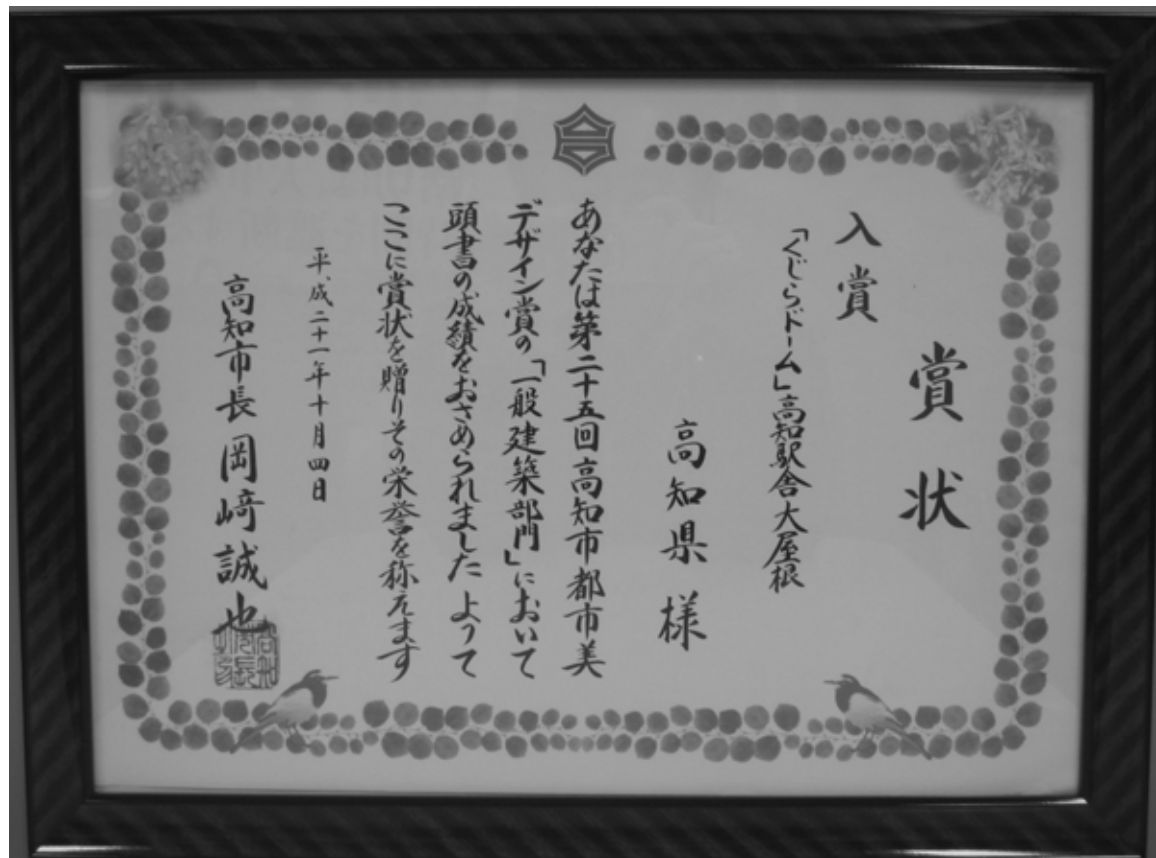 賞状
入賞
「くじらドーム」高知駅舎大屋根
高知県様
あなたは第二十五回高知市都市美
デザイン賞の「一般建築部門」において
頭書の成績をおさめられました よって
ここに賞状を贈りその栄誉を称えます
平成二十一年十月四日
高知市長 岡﨑誠也